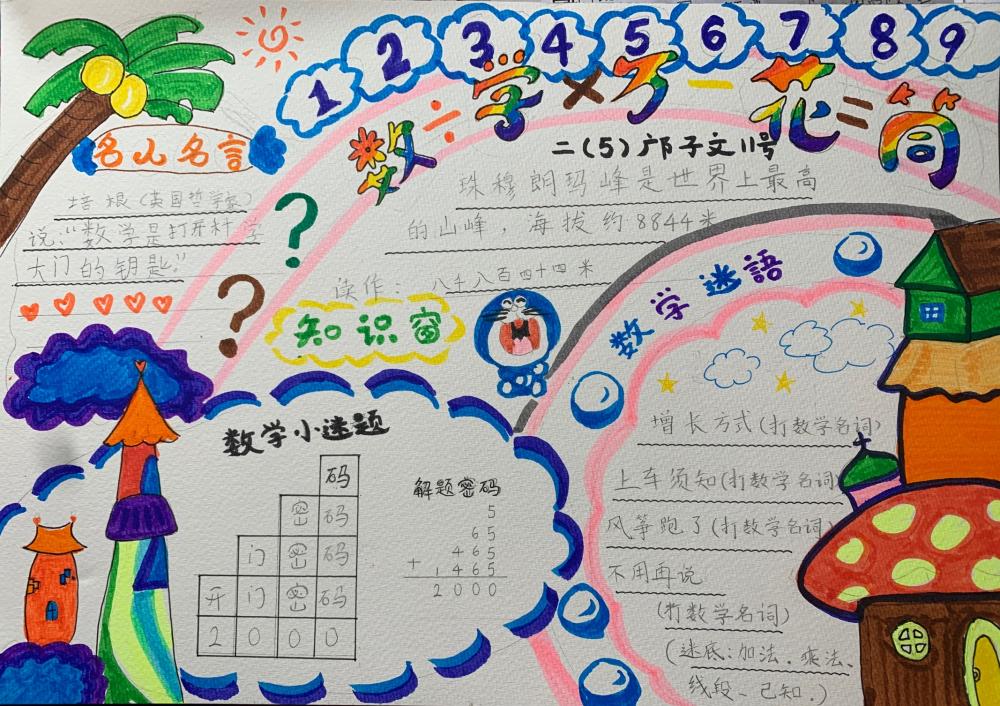 1 2 3 4 5 6 7 8 9
数÷学×万-花=筒
二(5)邝子文11号
名人名言
培根(英国哲学家)
说:"数学是打开科学
大门的钥匙。"
?
?
珠穆朗玛峰是世界上最高
的山峰，海拔约8844米
读作：八千八百四十四米
知识窗
数学小迷题
码
密码
门密码
开门密码
2000
解题密码
5
65
465
+1465
2000
数学迷語
增长方式(打数学名词)
上车须知(打数学名词)
风筝跑了(打数学名词)
不用再说
(打数学名词)
(迷底:加法、乘法、
线段、已知.)